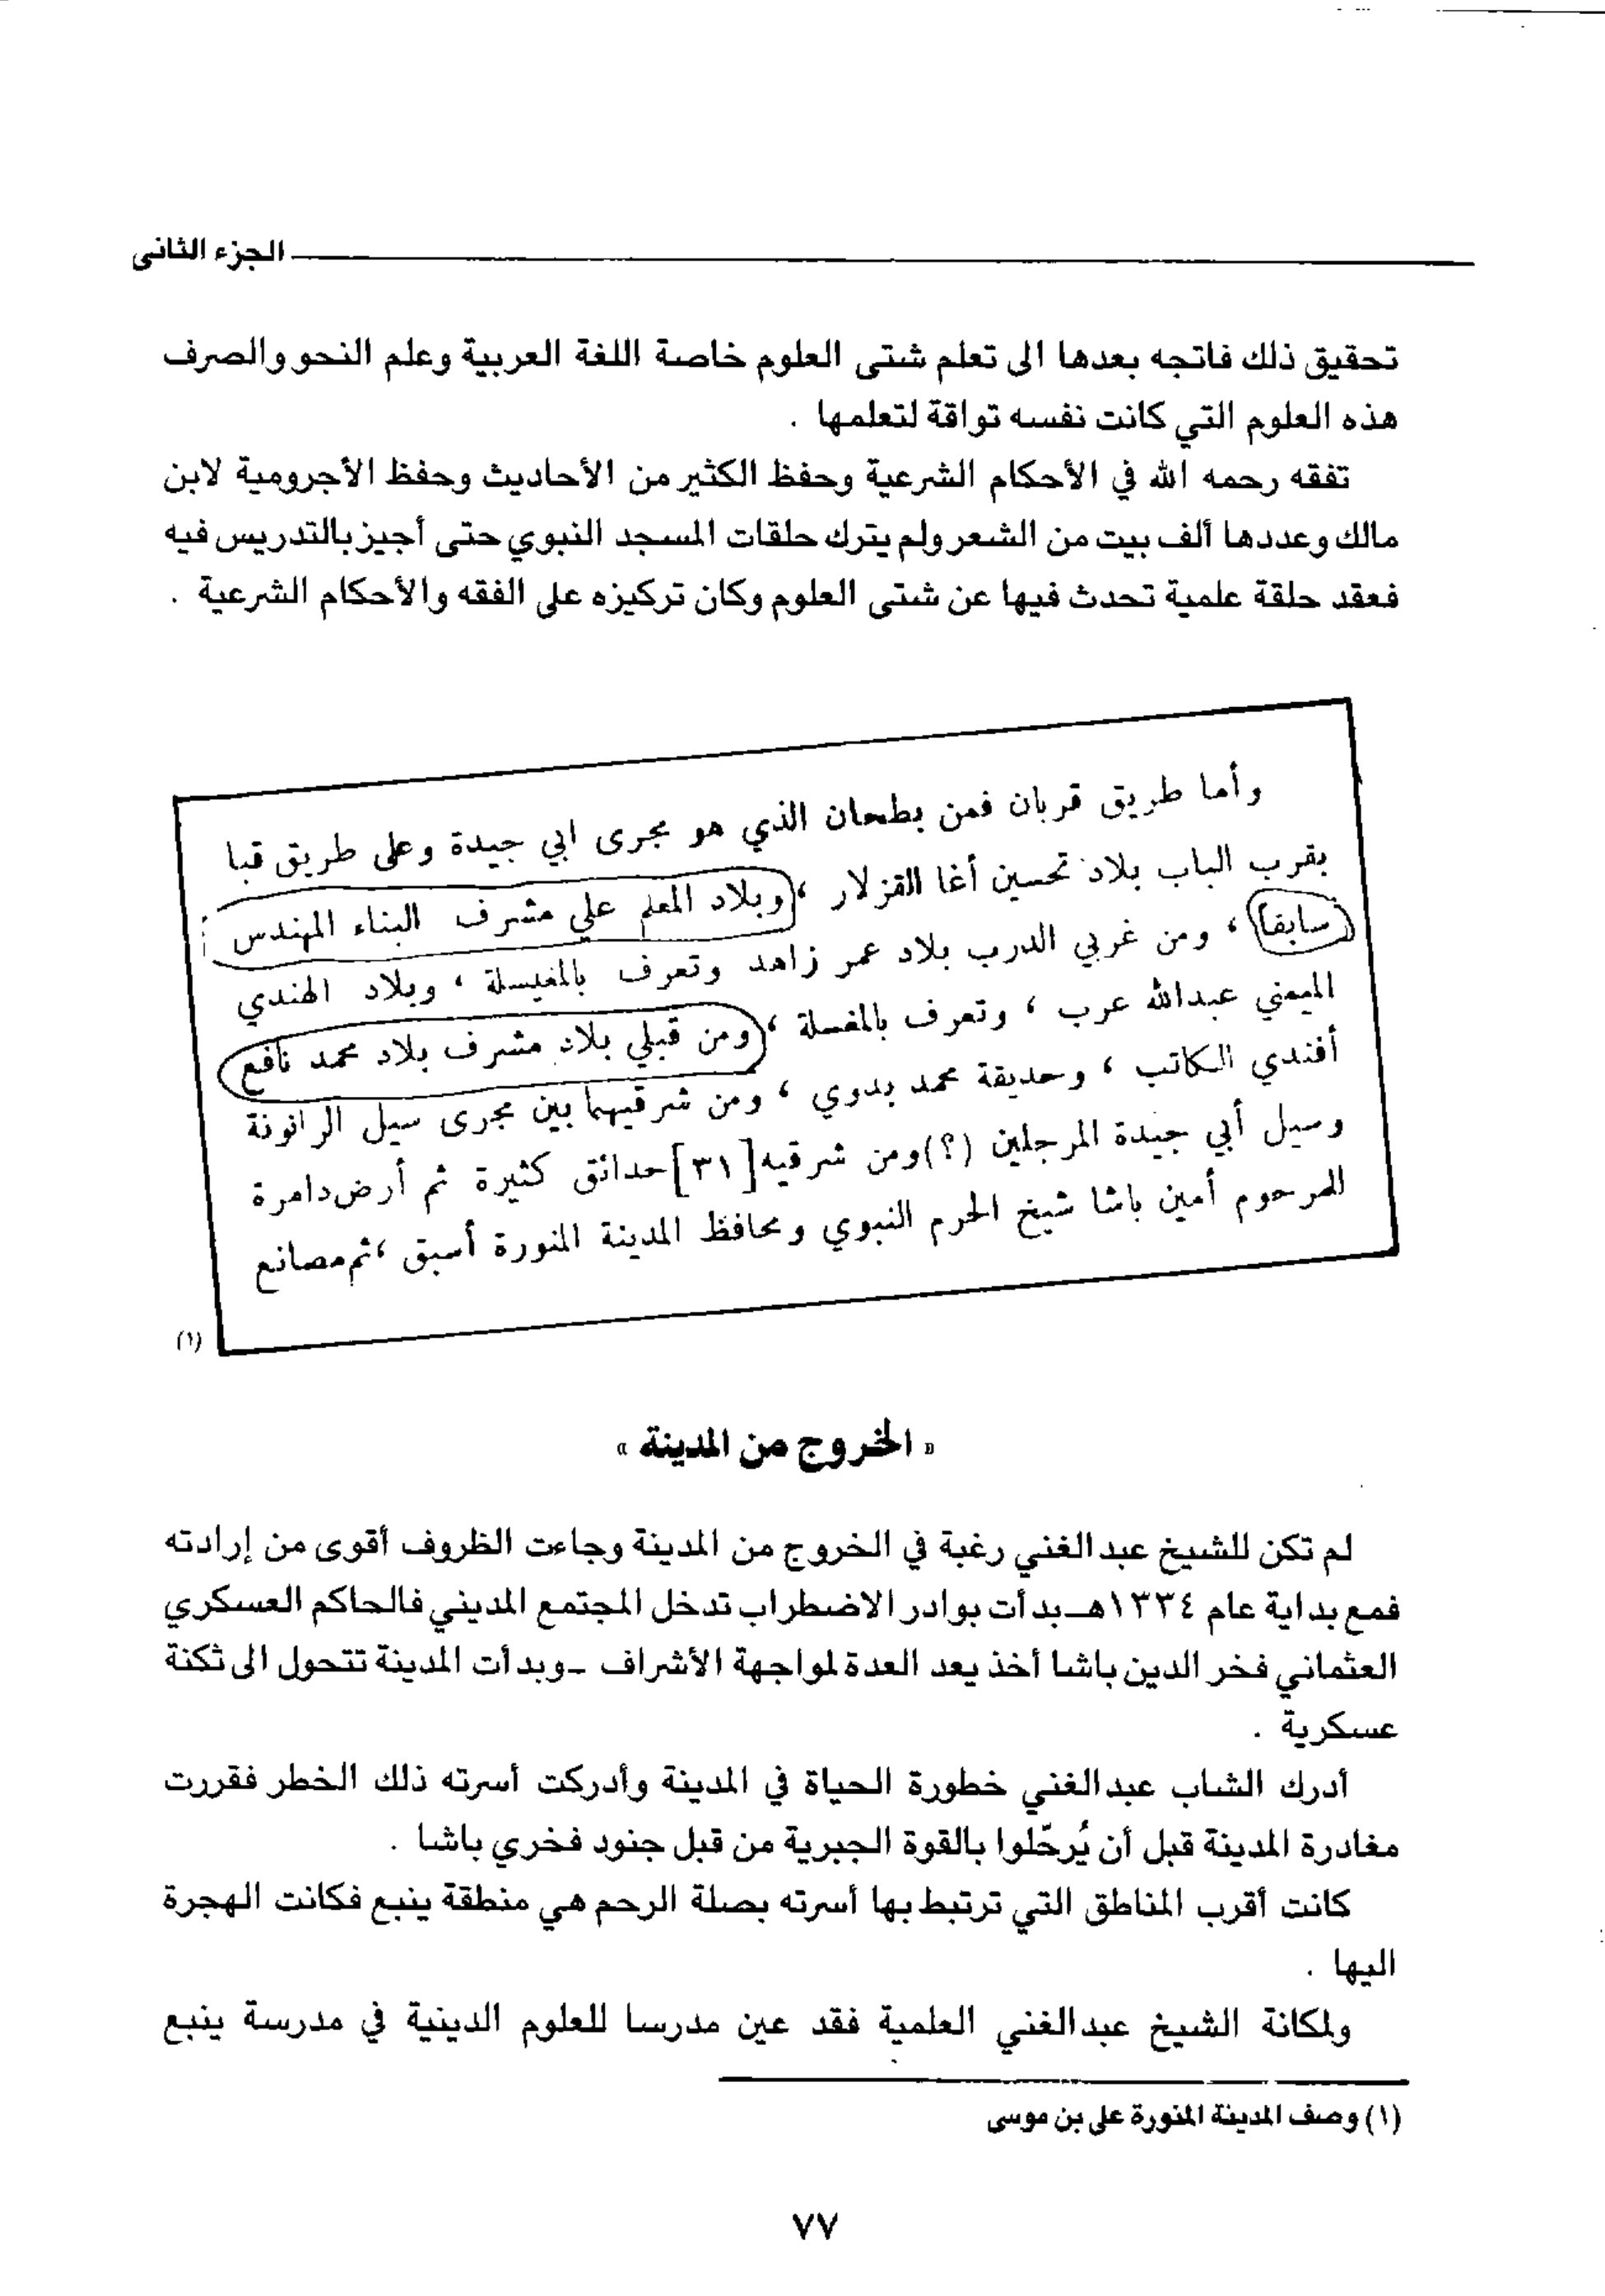 الجزء الثانى
تحقيق ذلك فاتجه بعدها الى تعلم شتى العلوم خاصة اللغة العربية وعلم النحو والصرف
هذه العلوم التي كانت نفسه تواقة لتعلمها .
تفقه رحمه الله في الأحكام الشرعية وحفظ الكثير من الأحاديث وحفظ الأجرومية لابن
مالك وعددها ألف بيت من الشعر ولم يترك حلقات المسجد النبوي حتى أجيز بالتدريس فيه
فعقد حلقة علمية تحدث فيها عن شتى العلوم وكان تركيزه على الفقه والأحكام الشرعية .
وأما طريق قربان فمن بطحان الذي هو مجرى ابي جيدة وعلى طريق قبا
بقرب الباب بلاد تحسين أغا القزلار ، وبلاد المعلم علي مشرف البناء المهندس
سابقاً ، ومن غربي الدرب بلاد عمر زاهد وتعرف بالمغيسلة ، وبلاد الهندي
الميمني عبدالله عرب ، وتعرف بالمغسلة ، ومن قبلي بلاد مشرف بلاد محمد نافع
أفندي الكاتب ، وحديقة محمد بدوي ، ومن شرقيهما بين مجرى سيل الرانونة
وسيل أبي جيدة المرجلين (؟) ومن شرقيه [٣١] حدائق كثيرة ثم أرض دامرة
للمرحوم أمين باشا شيخ الحرم النبوي ومحافظ المدينة المنورة أسبق ، ثم مصانع
(١)
« الخروج من المدينة »
لم تكن للشيخ عبد الغني رغبة في الخروج من المدينة وجاءت الظروف أقوى من إرادته
فمع بداية عام ١٣٣٤هـ بدأت بوادر الاضطراب تدخل المجتمع المديني فالحاكم العسكري
العثماني فخر الدين باشا أخذ يعد العدة لمواجهة الأشراف - وبدأت المدينة تتحول الى ثكنة
عسكرية .
أدرك الشاب عبدالغني خطورة الحياة في المدينة وأدركت أسرته ذلك الخطر فقررت
مغادرة المدينة قبل أن يُرحّلوا بالقوة الجبرية من قبل جنود فخري باشا .
كانت أقرب المناطق التي ترتبط بها أسرته بصلة الرحم هي منطقة ينبع فكانت الهجرة
اليها .
ولمكانة الشيخ عبدالغني العلمية فقد عين مدرسا للعلوم الدينية في مدرسة ينبع
(١) وصف المدينة المنورة على بن موسى
٧٧